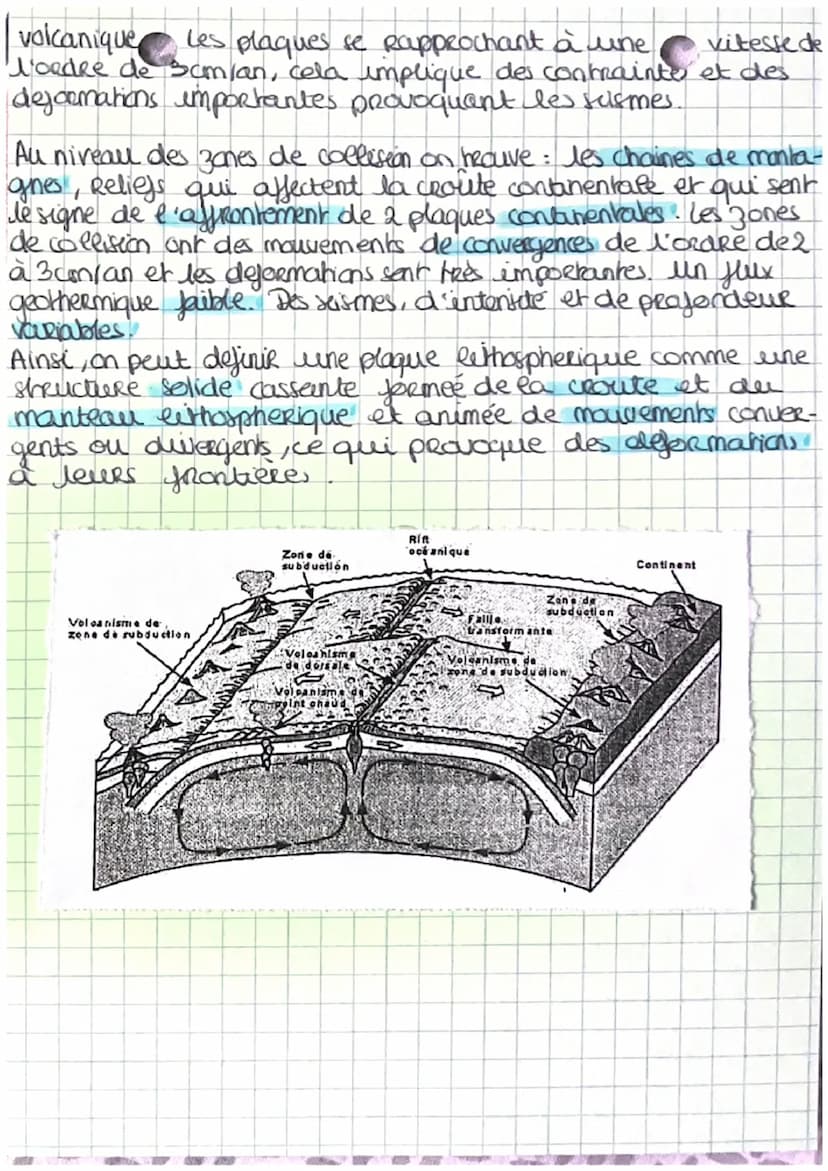 volcanique Les plaques se rapprochant à une vitesse de
l'ordre de 3cm/an, cela implique des contrainte et des
deformations importantes provoquant les seismes.
Au niveau des zones de collision on trouve : les chaines de monta-
gnes, reliefs qui affectent la croûte continentale et qui sont
le signe de l'affrontement de 2 plaques continentales. Les zones
de collision ont des mouvements de convergences de l'ordre de 2
à 3cm/an et les deformations sont très importantes. Un flux
geothermique faible. Des seismes, d'intensité et de profondeur
variables.
Ainsi, on peut definir une plaque lithospherique comme une
structure solide cassante formeé de la croute et du
manteau lithospherique et animée de mouvements conver-
gents ou divergents, ce qui provoque des deformations
à leurs frontières.
Rift
océanique
Zone de
subduction
Continent
Zone de
subduction
Volcanisme de
zone de subduction
Faille
transformante
Volcanisme
de dorsale
Volcanisme de
zone de subduction
Volcanisme de
point chaud